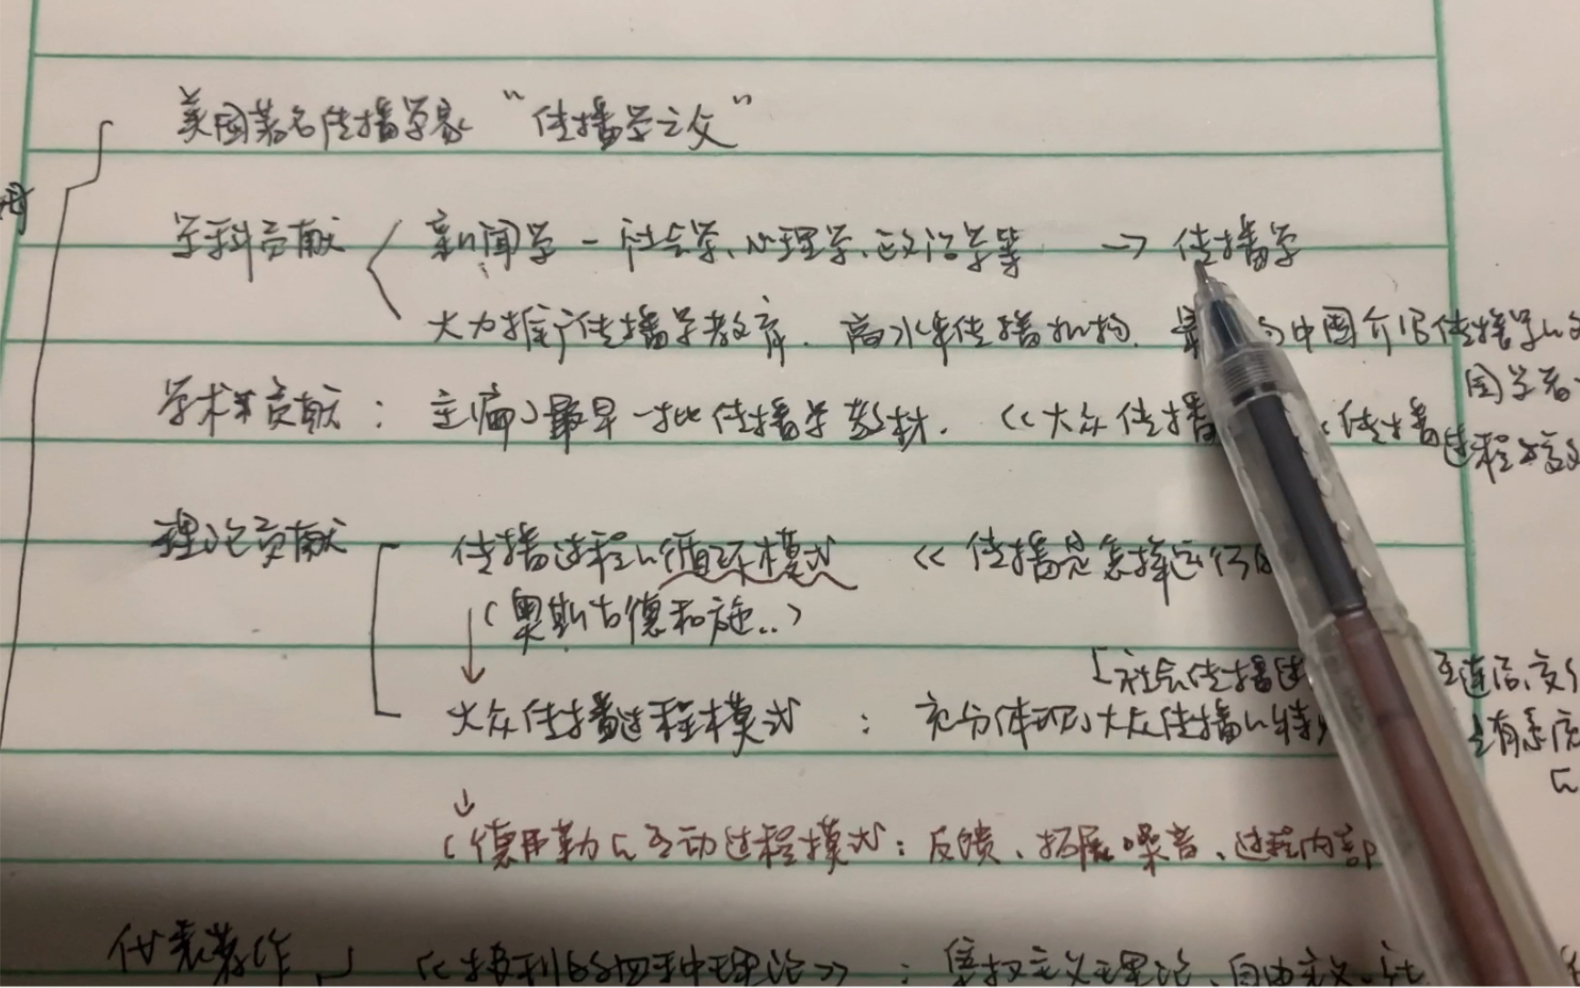 美国著名传播学家 “传播学之父”
学科贡献 新闻学 - 社会学、心理学、政治学等 → 传播学
大力推广传播学教育. 高水准传播机构. 中国介绍传播学
国学者
学术贡献: 主编了最早一批传播学教材. 《大众传播 传播
过程
理论贡献 传播过程的循环模式 《传播是怎样运行
(奥斯古德和施..)
社会传播
大众传播过程模式 : 充分体现了大众传播的特
↓
(德弗勒的互动过程模式: 反馈、拓展噪音、过程内部
代表著作 《报刊的四种理论》 : 集权主义理论、自由主义、社